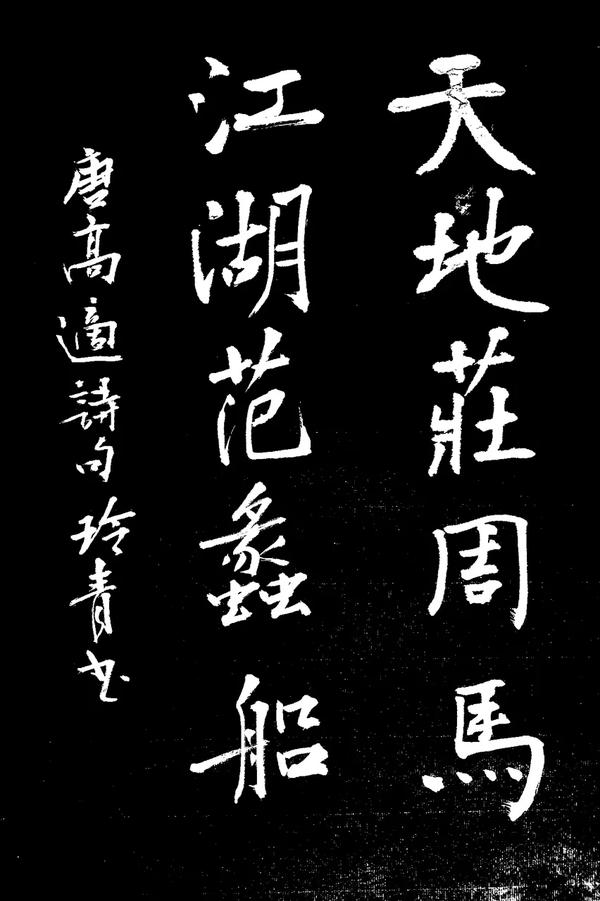 天地莊周馬
江湖范蠡船
唐高適詩句玲青书